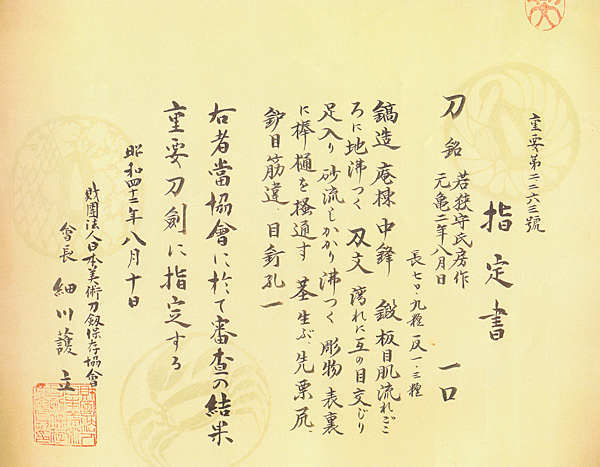 重要第二二六三號
指定書
刀 銘 若狭守氏房作 一口
元亀二年八月日
長七〇・九糎 反一・三糎
鎬造 庵棟 中鋒 鍛 板目肌流れごこ
ろに地沸つく 刃文 湾れに互の目交じり
足入り 砂流しかかり 沸つく 彫物 表裏
に棒樋を掻通す 茎 生ぶ 先栗尻
鑢目筋違 目釘孔一
右者當協會に於て審査の結果
重要刀劍に指定する
昭和四十二年八月十日
財團法人日本美術刀劔保存協會
會長 細川護立